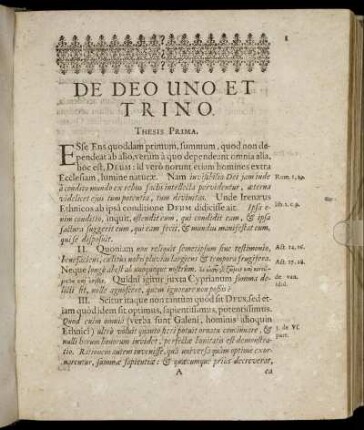 1
DE DEO UNO ET
TRINO.
THESIS PRIMA.
ESse Ens quoddam primum, summum, quod non de-
pendeat ab alio, verùm à quo dependeant omnia alia,
hoc est, DEUM: id verò norunt etiam homines extra
Ecclesiam, lumine naturæ. Nam invisibilia Dei jam inde
à condito mundo ex rebus factis intellecta pervidentur, æterna
videlicet ejus tum potentia, tum divinitas. Unde Irenæus
Ethnicos ab ipsâ conditione DEUM didicisse ait. Ipsa e-
nim conditio, inquit, ostendit eum, qui condidit eam, & ipsa
factura suggerit eum, qui eam fecit, & mundus manifestat eum,
qui se disposuit.
II. Quoniam non reliquit semetipsum sine testimonio,
benefaciens, cœlitus nobis pluvias largiens & tempora frugifera.
Neque longè abest ab unoquoque nostrûm.
Quid igitur juxta Cyprianum summa de-
licti est, nolle agnoscere, quem ignorare non possis?
III. Scitur itaque non tantùm quòd sit DEUS, sed et-
iam quòd idem sit optimus, sapientissimus, potentissimus.
Quod enim omnia (verba sunt Galeni, hominis alioquin
Ethnici) ultrò voluit quanto fieri potuit ornatu concinnare, &
nulli horum bonorum invidet, perfectæ bonitatis est demonstra-
tio. Rationem autem invenisse, quâ universa quàm optimè exor-
narentur, summæ sapientiæ: & quæcunque prius decreverat,
A
ea
Rom. 1, 20.
Act. 14, 16.
Act. 17, 28.